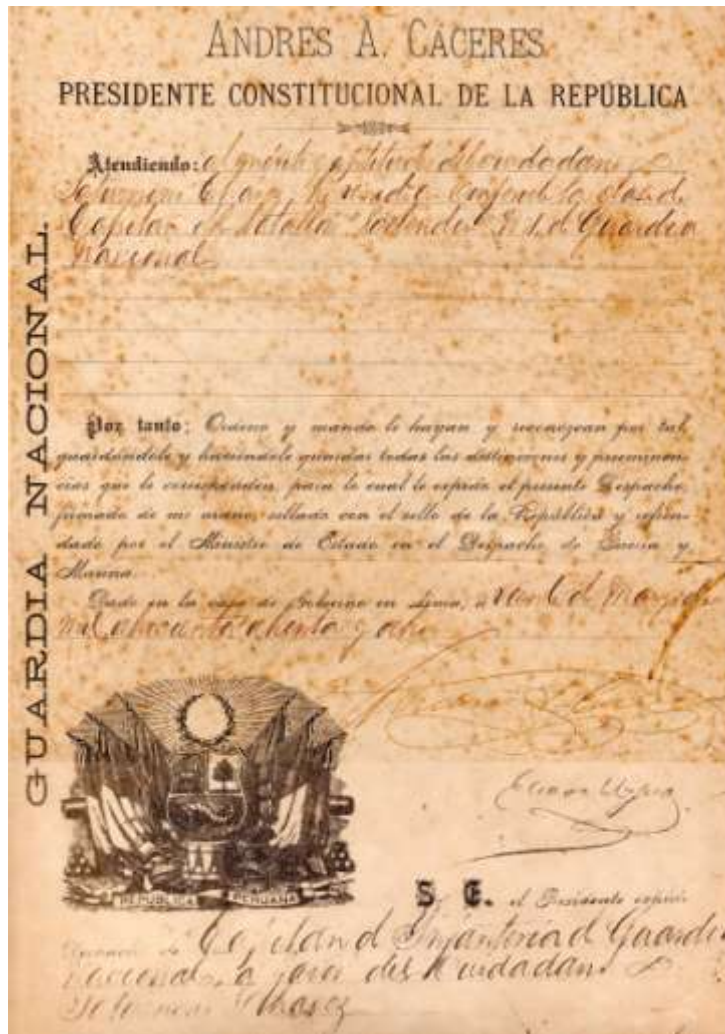 ANDRES A. CACERES
PRESIDENTE CONSTITUCIONAL DE LA REPÚBLICA
GUARDIA NACIONAL.
Atendiendo: al mérito y aptitudes del ciudadano D.
conferirle la clase de
Capitan del Batallon N. 1. de Guardia
Nacional
Por tanto: Ordeno y mando le hayan y reconozcan por tal,
guardándole y haciéndole guardar todas las distinciones y preeminen-
cias que le corresponden, para lo cual le expido el presente Despacho,
firmado de mi mano, sellado con el sello de la República y refren-
dado por el Ministro de Estado en el Despacho de Guerra y
Marina.
Dado en la casa de Gobierno en Lima, á de
mil ochocientos ochenta y ocho
REPÚBLICA PERUANA
S. E. el Presidente expide
de Capitan de Infantería de Guardia
Nacional, a favor del Ciudadano D.